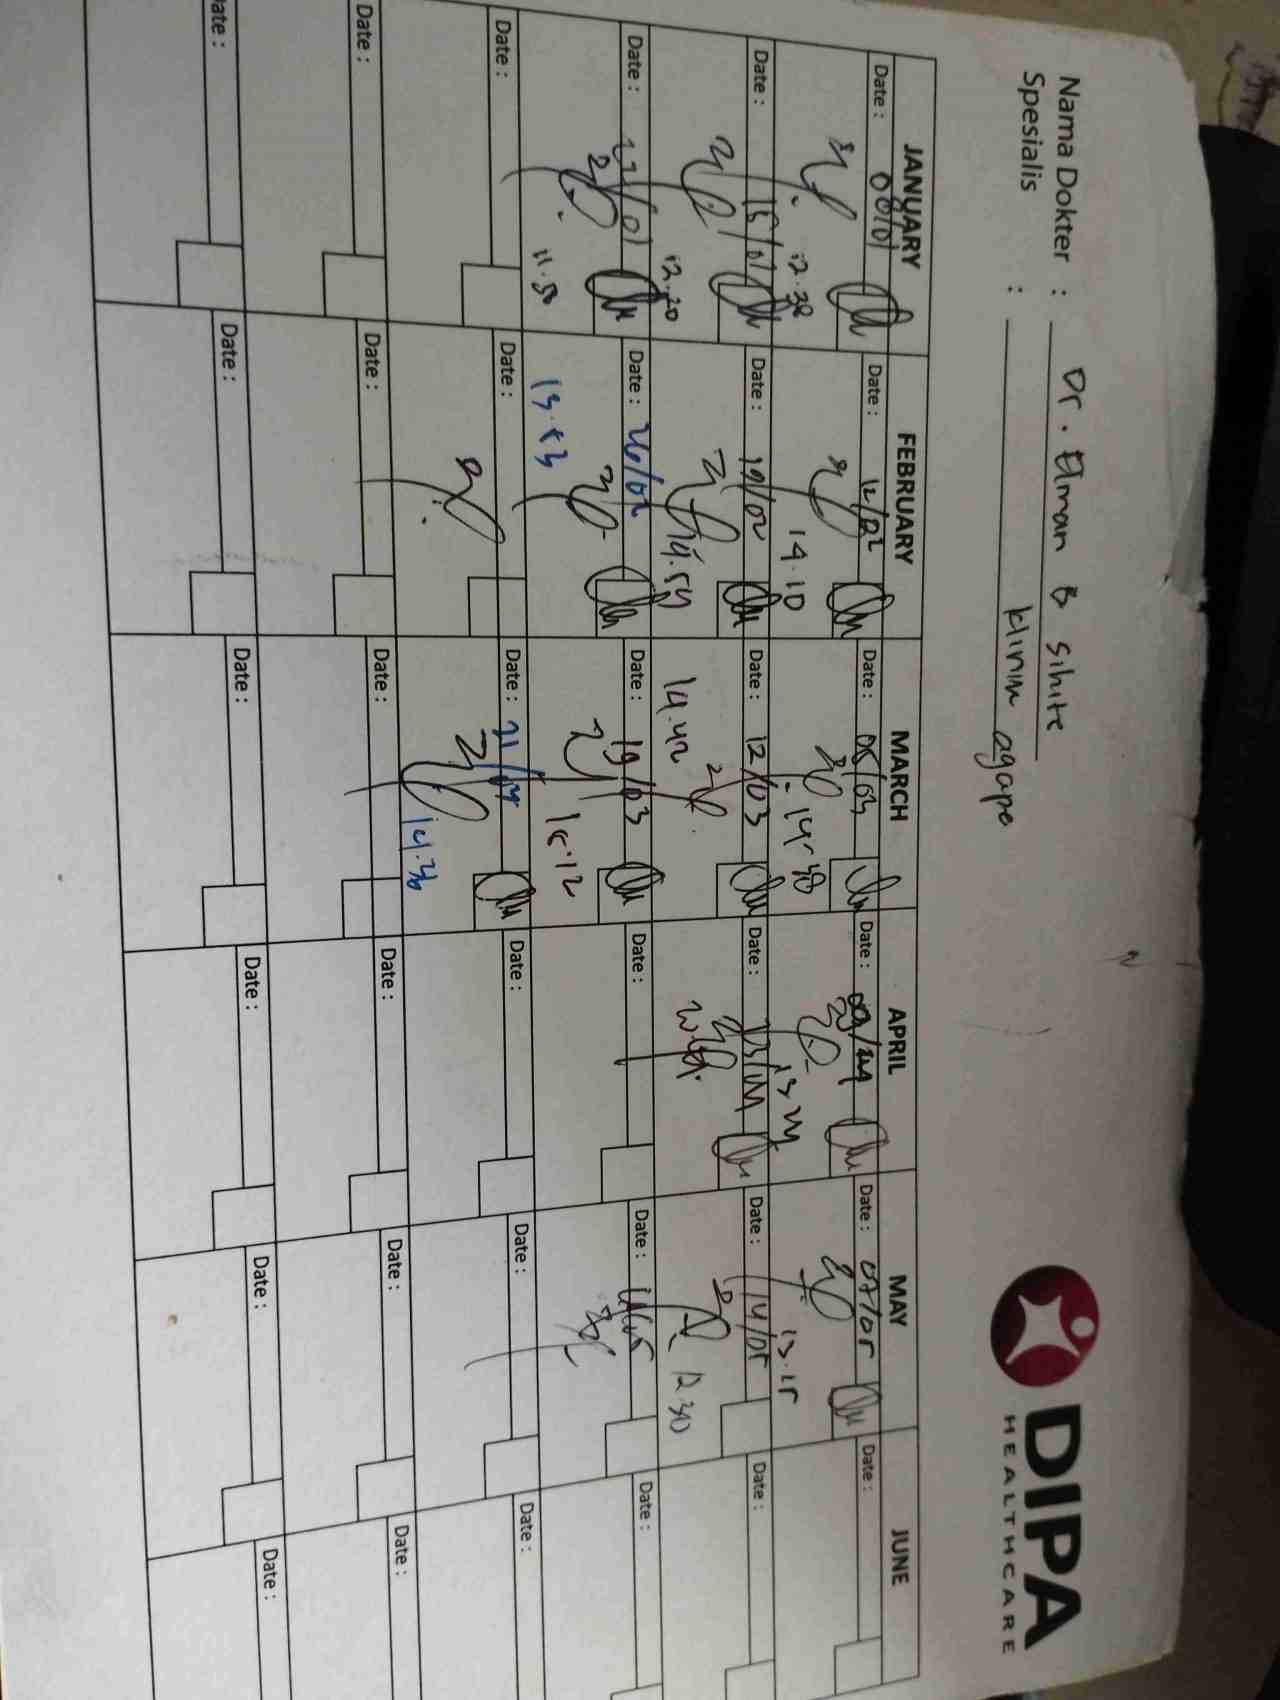 DIPA
HEALTHCARE
Nama Dokter : Dr. Elman B sihite
Spesialis : klinik agape
JANUARY FEBRUARY MARCH APRIL MAY JUNE
Date : 08/01 Date : 12/02 Date : 05/03 Date : 09/04 Date : 07/05 Date :
12.38 14.10 14.38 13.24 13.15
Date : 15/01 Date : 19/02 Date : 12/03 Date : Date : 14/05 Date :
12.20 14.54 14.42 12.30
Date : Date : 26/02 Date : 19/03 Date : Date : Date :
11.50 13.43 15.12
Date : Date : Date : Date : Date : Date :
14.36
Date : Date : Date : Date : Date : Date :
Date : Date : Date : Date : Date : Date :